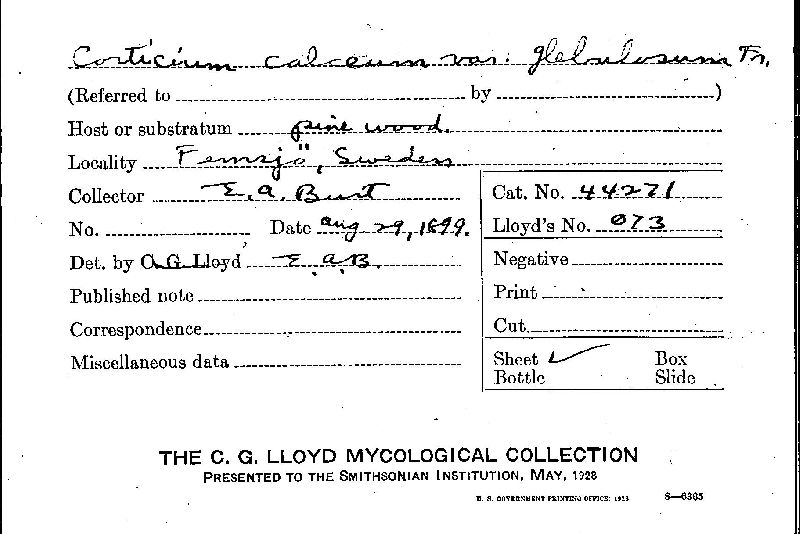 Corticium calceum var. glebulosum Fr.
(Referred to by )
Host or substratum pine wood.
Locality Femsjö, Sweden
Collector E. A. Burt
Cat. No. 44271
No. Date Aug 29, 1899.
Lloyd's No. 073
Det. by C. G. Lloyd E. A. B.
Negative
Published note
Print
Correspondence
Cut
Miscellaneous data
Sheet ✓ Box
Bottle Slide
THE C. G. LLOYD MYCOLOGICAL COLLECTION
PRESENTED TO THE SMITHSONIAN INSTITUTION, MAY, 1928
U. S. GOVERNMENT PRINTING OFFICE: 1928 8—6365